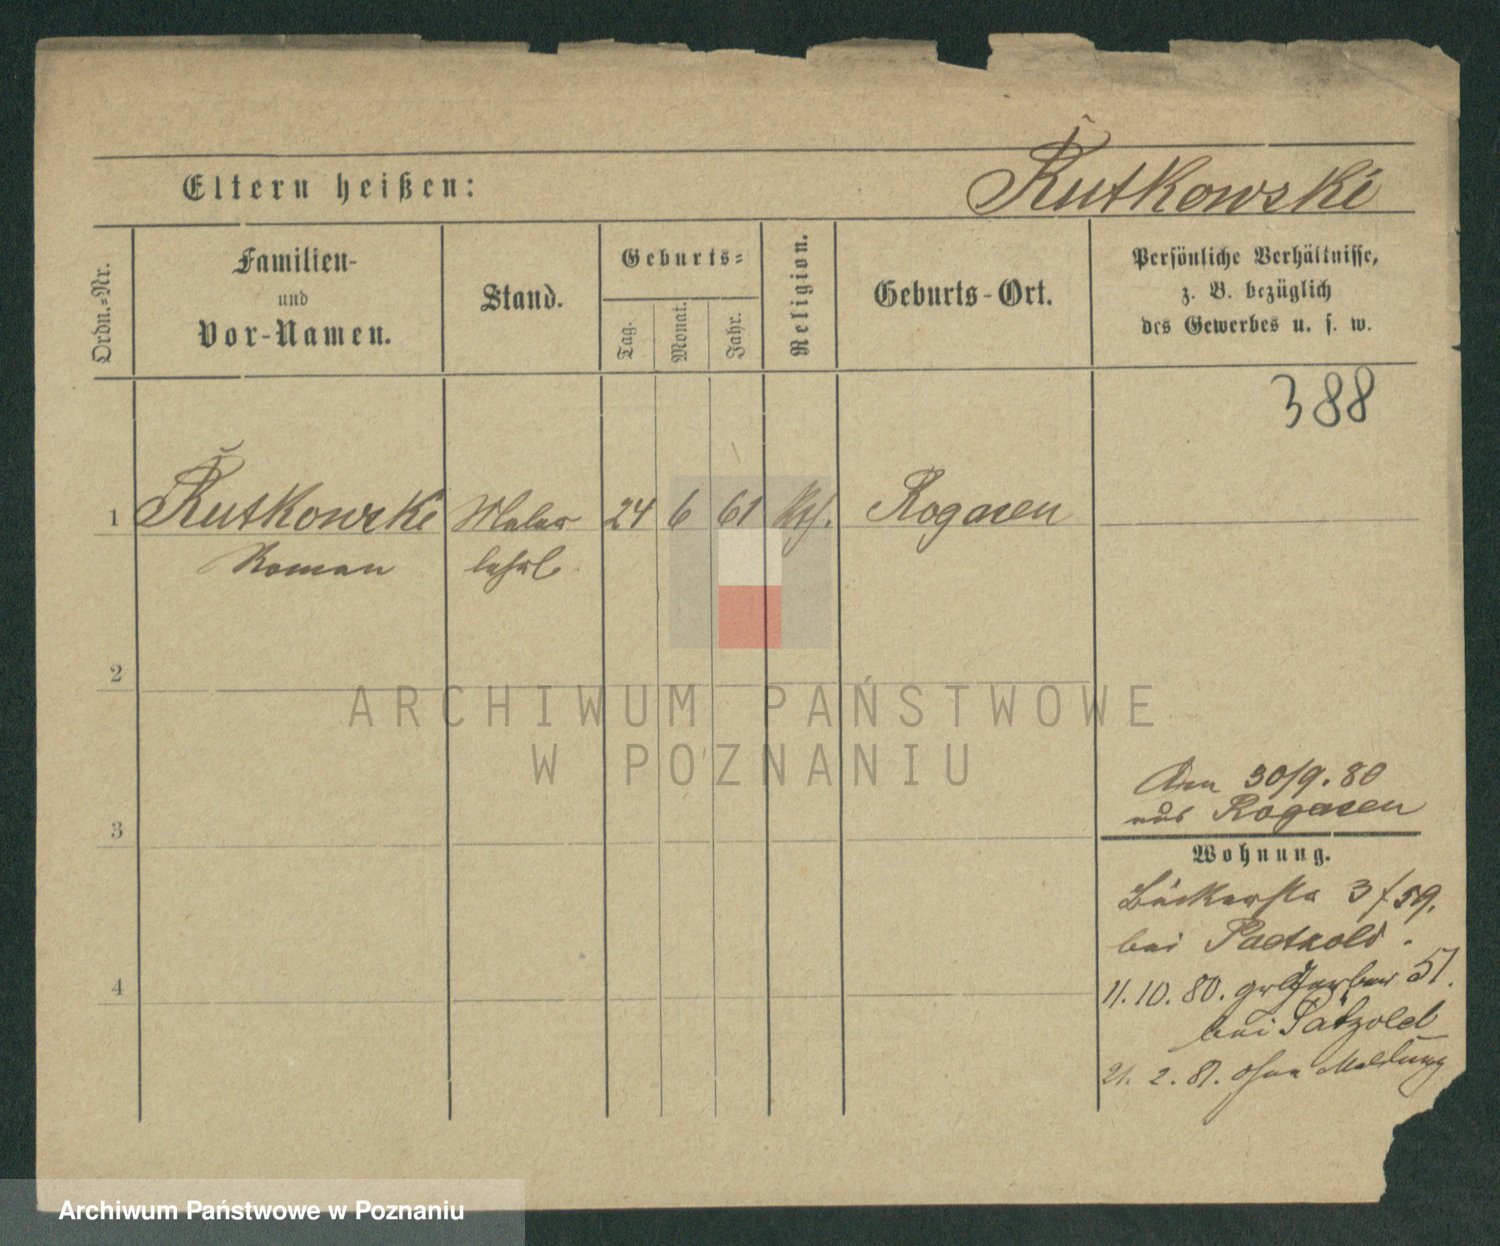 Eltern heißen:
Rutkowski
Ordn.-Nr.
Familien-
und
Vor-Namen.
Stand.
Geburts-
Tag.
Monat.
Jahr.
Religion.
Geburts-Ort.
Persönliche Verhältnisse,
z. B. bezüglich
des Gewerbes u. s. w.
388
1 Rutkowski Maler 24 6 61 Kth. Rogasen
Roman lehrl
2
3
4
ARCHIWUM PAŃSTWOWE
W POZNANIU
Am 30/9. 80
aus Rogasen
Wohnung.
Bäckerstr 3 / 59.
bei Paetzold.
11. 10. 80. gr Gerber 51.
bei Pätzold
21. 2. 81. ohne Meldung
Archiwum Państwowe w Poznaniu